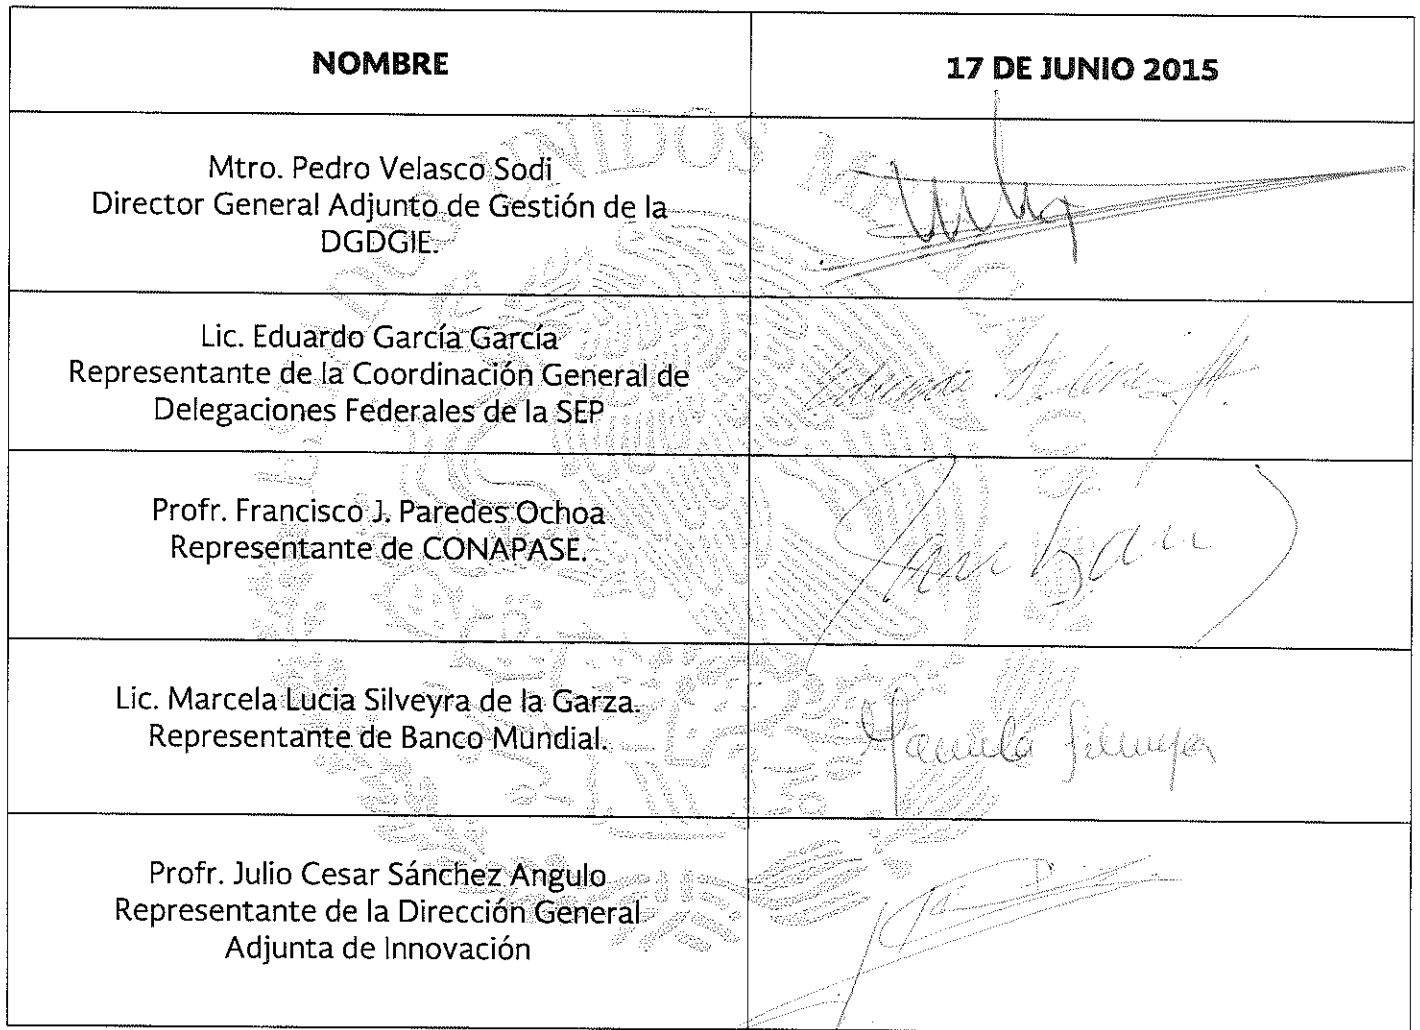 NOMBRE
17 DE JUNIO 2015
Mtro. Pedro Velasco Sodi
Director General Adjunto de Gestión de la
DGDGIE.
Lic. Eduardo García García
Representante de la Coordinación General de
Delegaciones Federales de la SEP
Profr. Francisco J. Paredes Ochoa
Representante de CONAPASE.
Lic. Marcela Lucia Silveyra de la Garza.
Representante de Banco Mundial.
Marcela Silveyra
Profr. Julio Cesar Sánchez Angulo
Representante de la Dirección General
Adjunta de Innovación